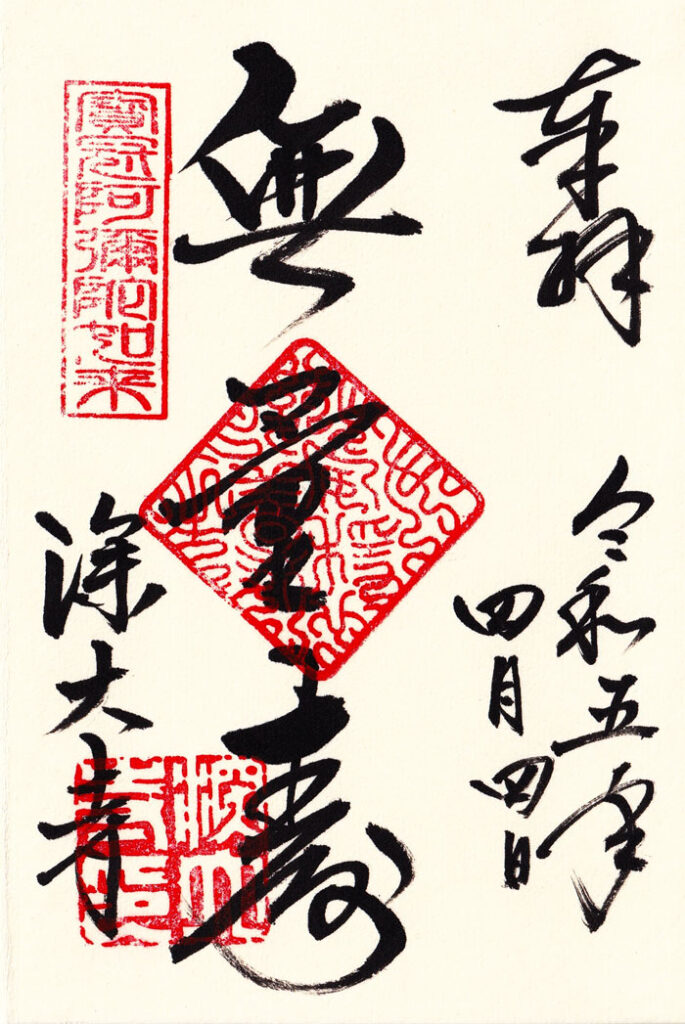 奉拝
令和五年
四月四日
無量壽
深大寺
寶冠阿彌陀如来